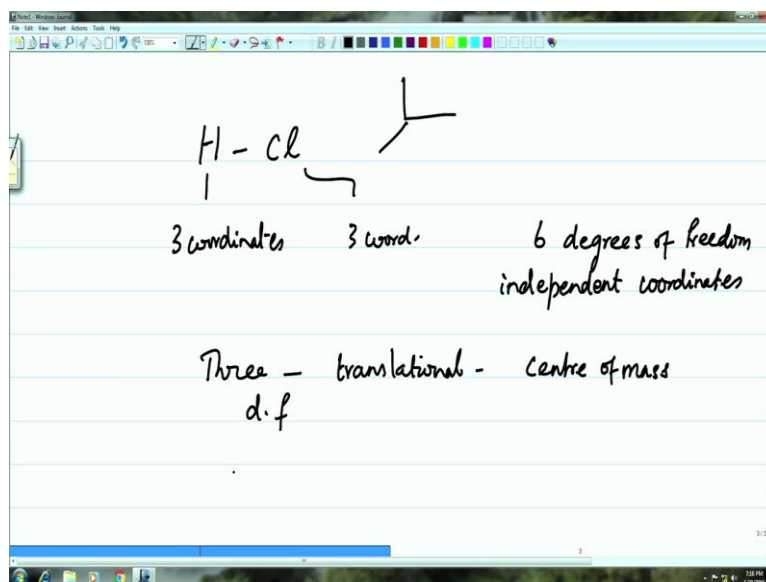 Note1 - Windows Journal
File Edit View Insert Actions Tools Help
B I
H - Cl
3 coordinates 3 coord. 6 degrees of freedom
independent coordinates
Three - translational - centre of mass
d.f
3/3
3
7:16 PM